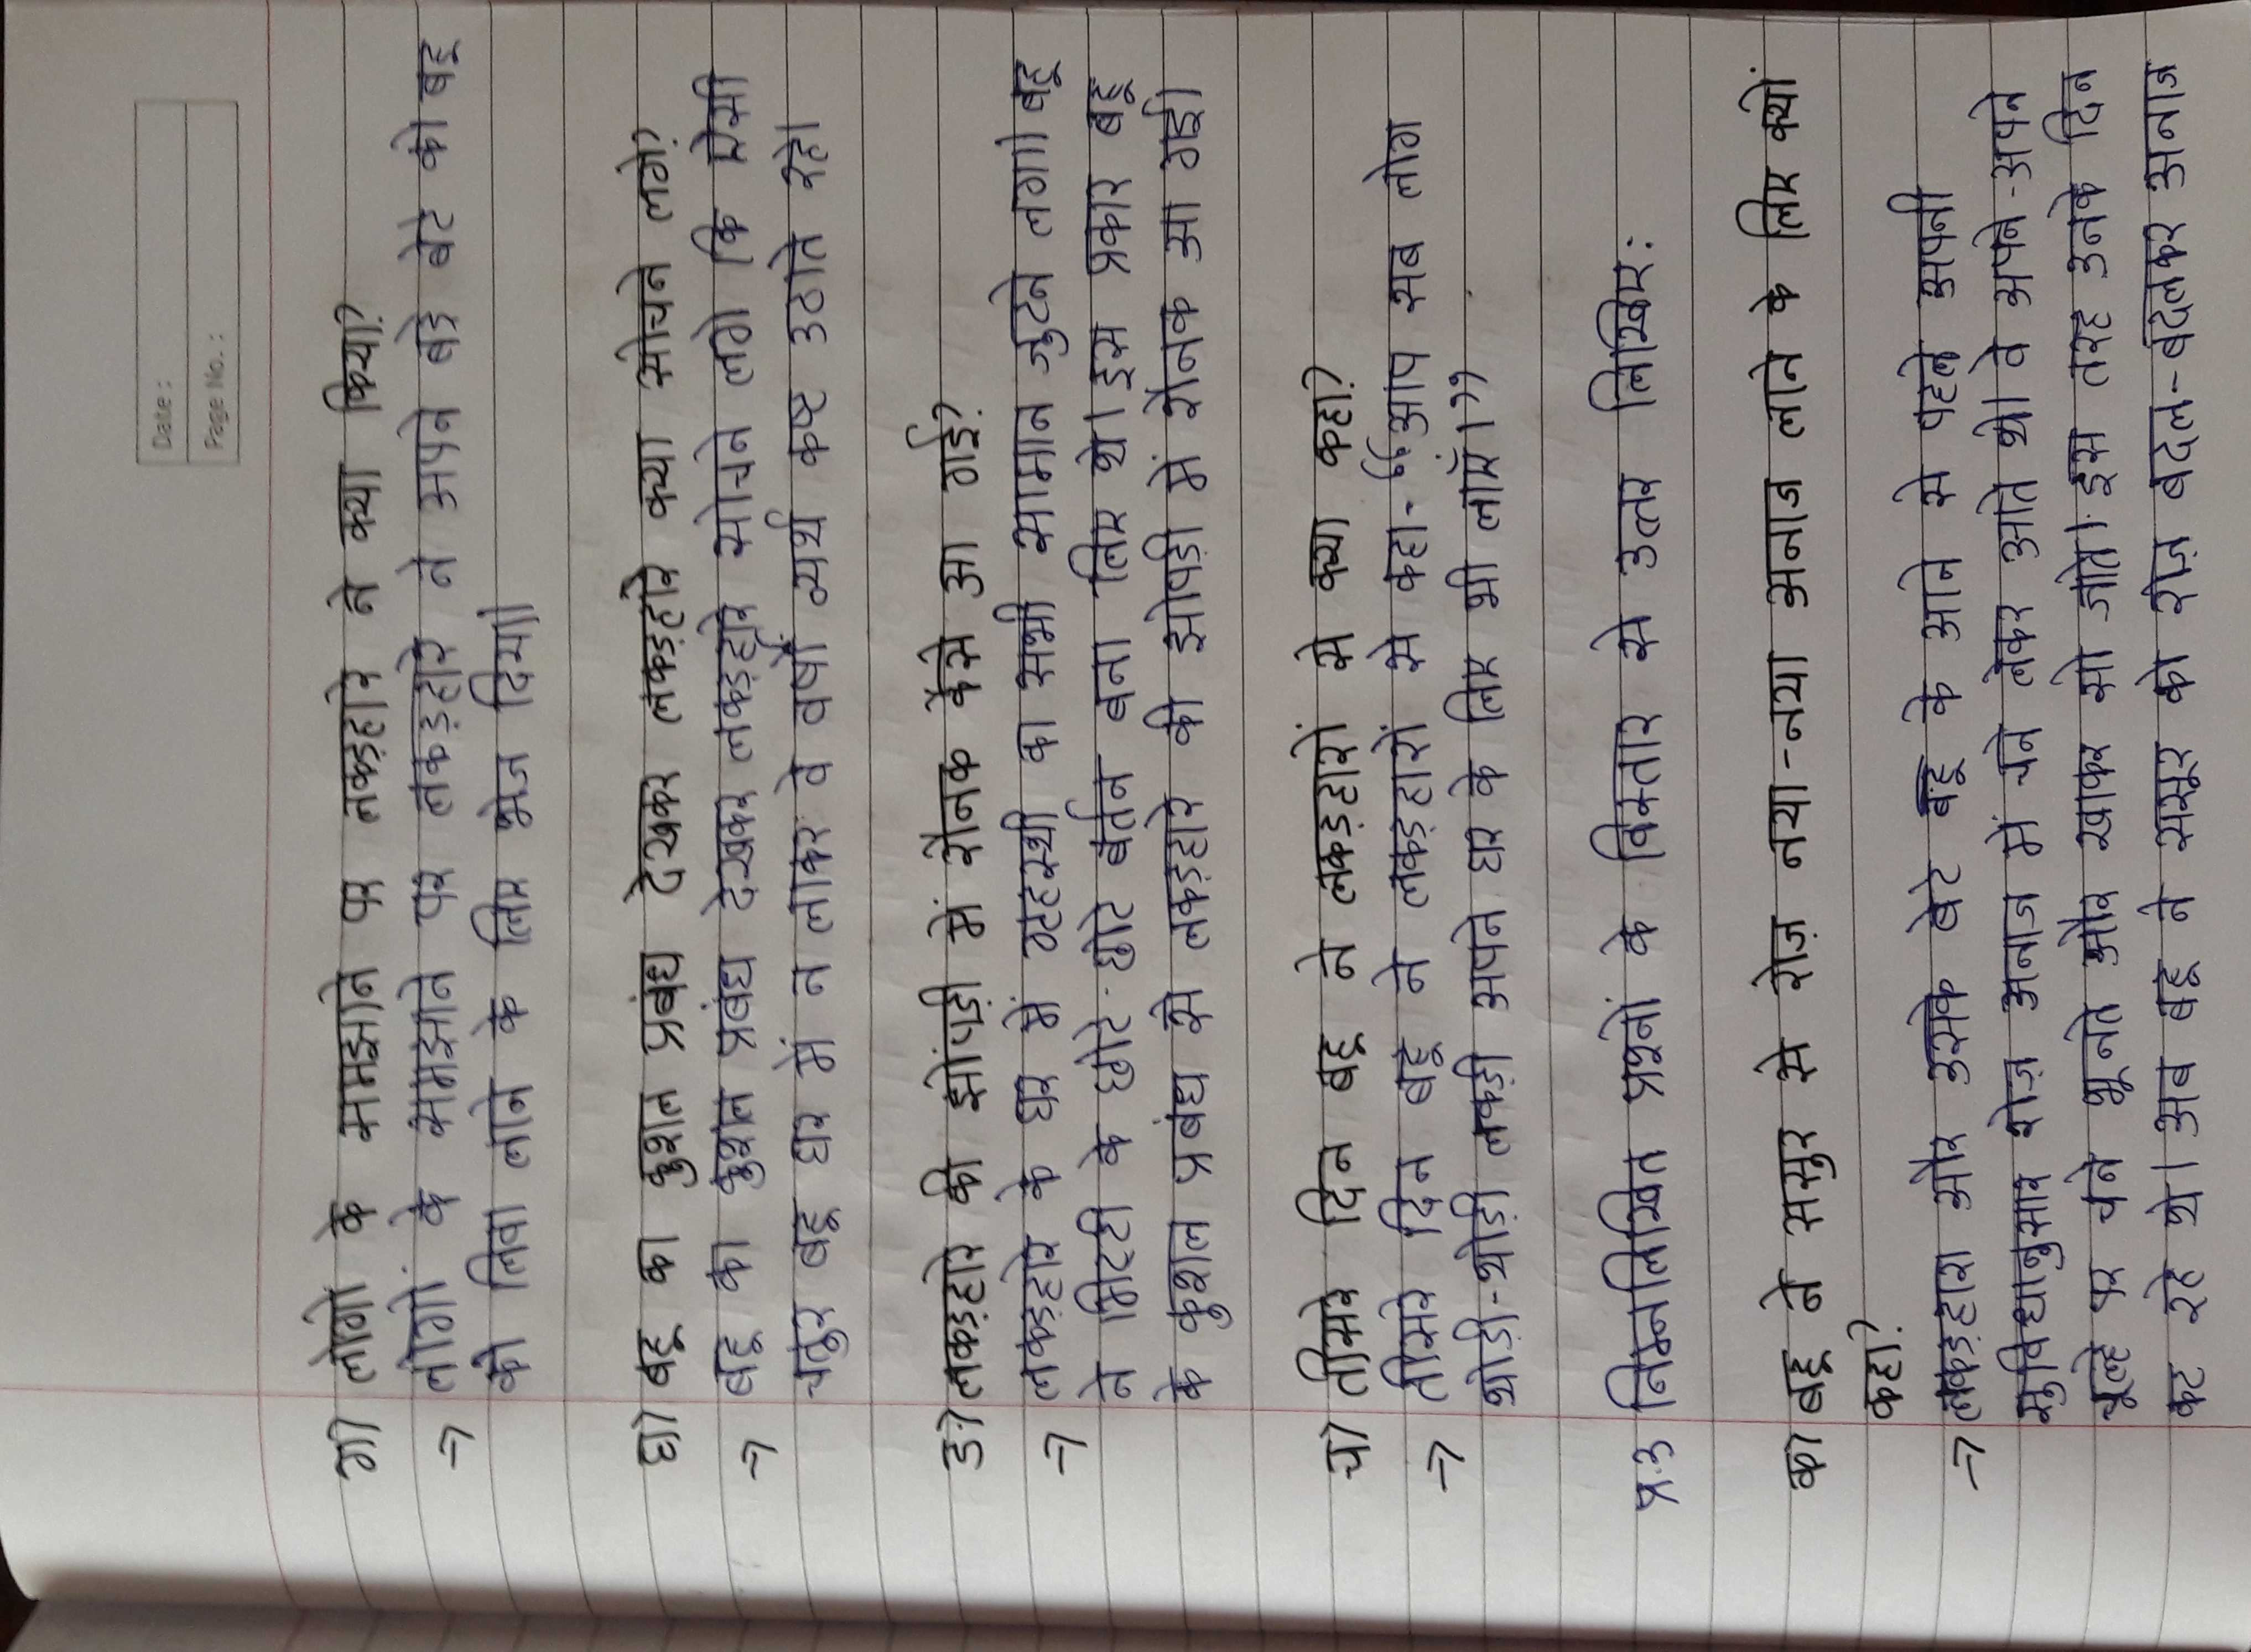 Date :
Page No. :
ग) लोगों के समझाने पर लकड़हारे ने क्या किया?
→ लोगों के समझाने पर लकड़हारे ने अपने बड़े बेटे को बहू
को लिवा लाने के लिए भेज दिया।
घ) बहू का कुशल प्रबंध देखकर लकड़हारे क्या सोचने लगे?
→ बहू का कुशल प्रबंध देखकर लकड़हारे सोचने लगे कि ऐसी
चतुर बहू घर में न लाकर वे वर्षों व्यर्थ कष्ट उठाते रहे।
ङ) लकड़हारे की झोंपड़ी में रौनक कैसे आ गई?
→ लकड़हारे के घर में गृहस्थी का सभी सामान जुटने लगा। बहू
ने मिट्टी के छोटे-छोटे बर्तन बना लिए थे। इस प्रकार बहू
के कुशल प्रबंध से लकड़हारे की झोपड़ी में रौनक आ गई।
च) तीसरे दिन बहू ने लकड़हारों से क्या कहा?
→ तीसरे दिन बहू ने लकड़हारों से कहा- "आप सब लोग
थोड़ी-थोड़ी लकड़ी अपने घर के लिए भी लाएँ।"
प्र.3 निम्नलिखित प्रश्नों के विस्तार से उत्तर लिखिए:
क) बहू ने ससुर से रोज़ नया-नया अनाज लाने के लिए क्यों
कहा?
→ लकड़हारा और उसके बेटे बहू के आने से पहले अपनी
सुविधानुसार रोज़ अनाज में चने लेकर आते थे। वे अपने-अपने
चूल्हे पर चने भूनते और खाकर सो जाते। इस तरह उनके दिन
कट रहे थे। अब बहू ने ससुर को रोज़ बदल-बदलकर अनाज